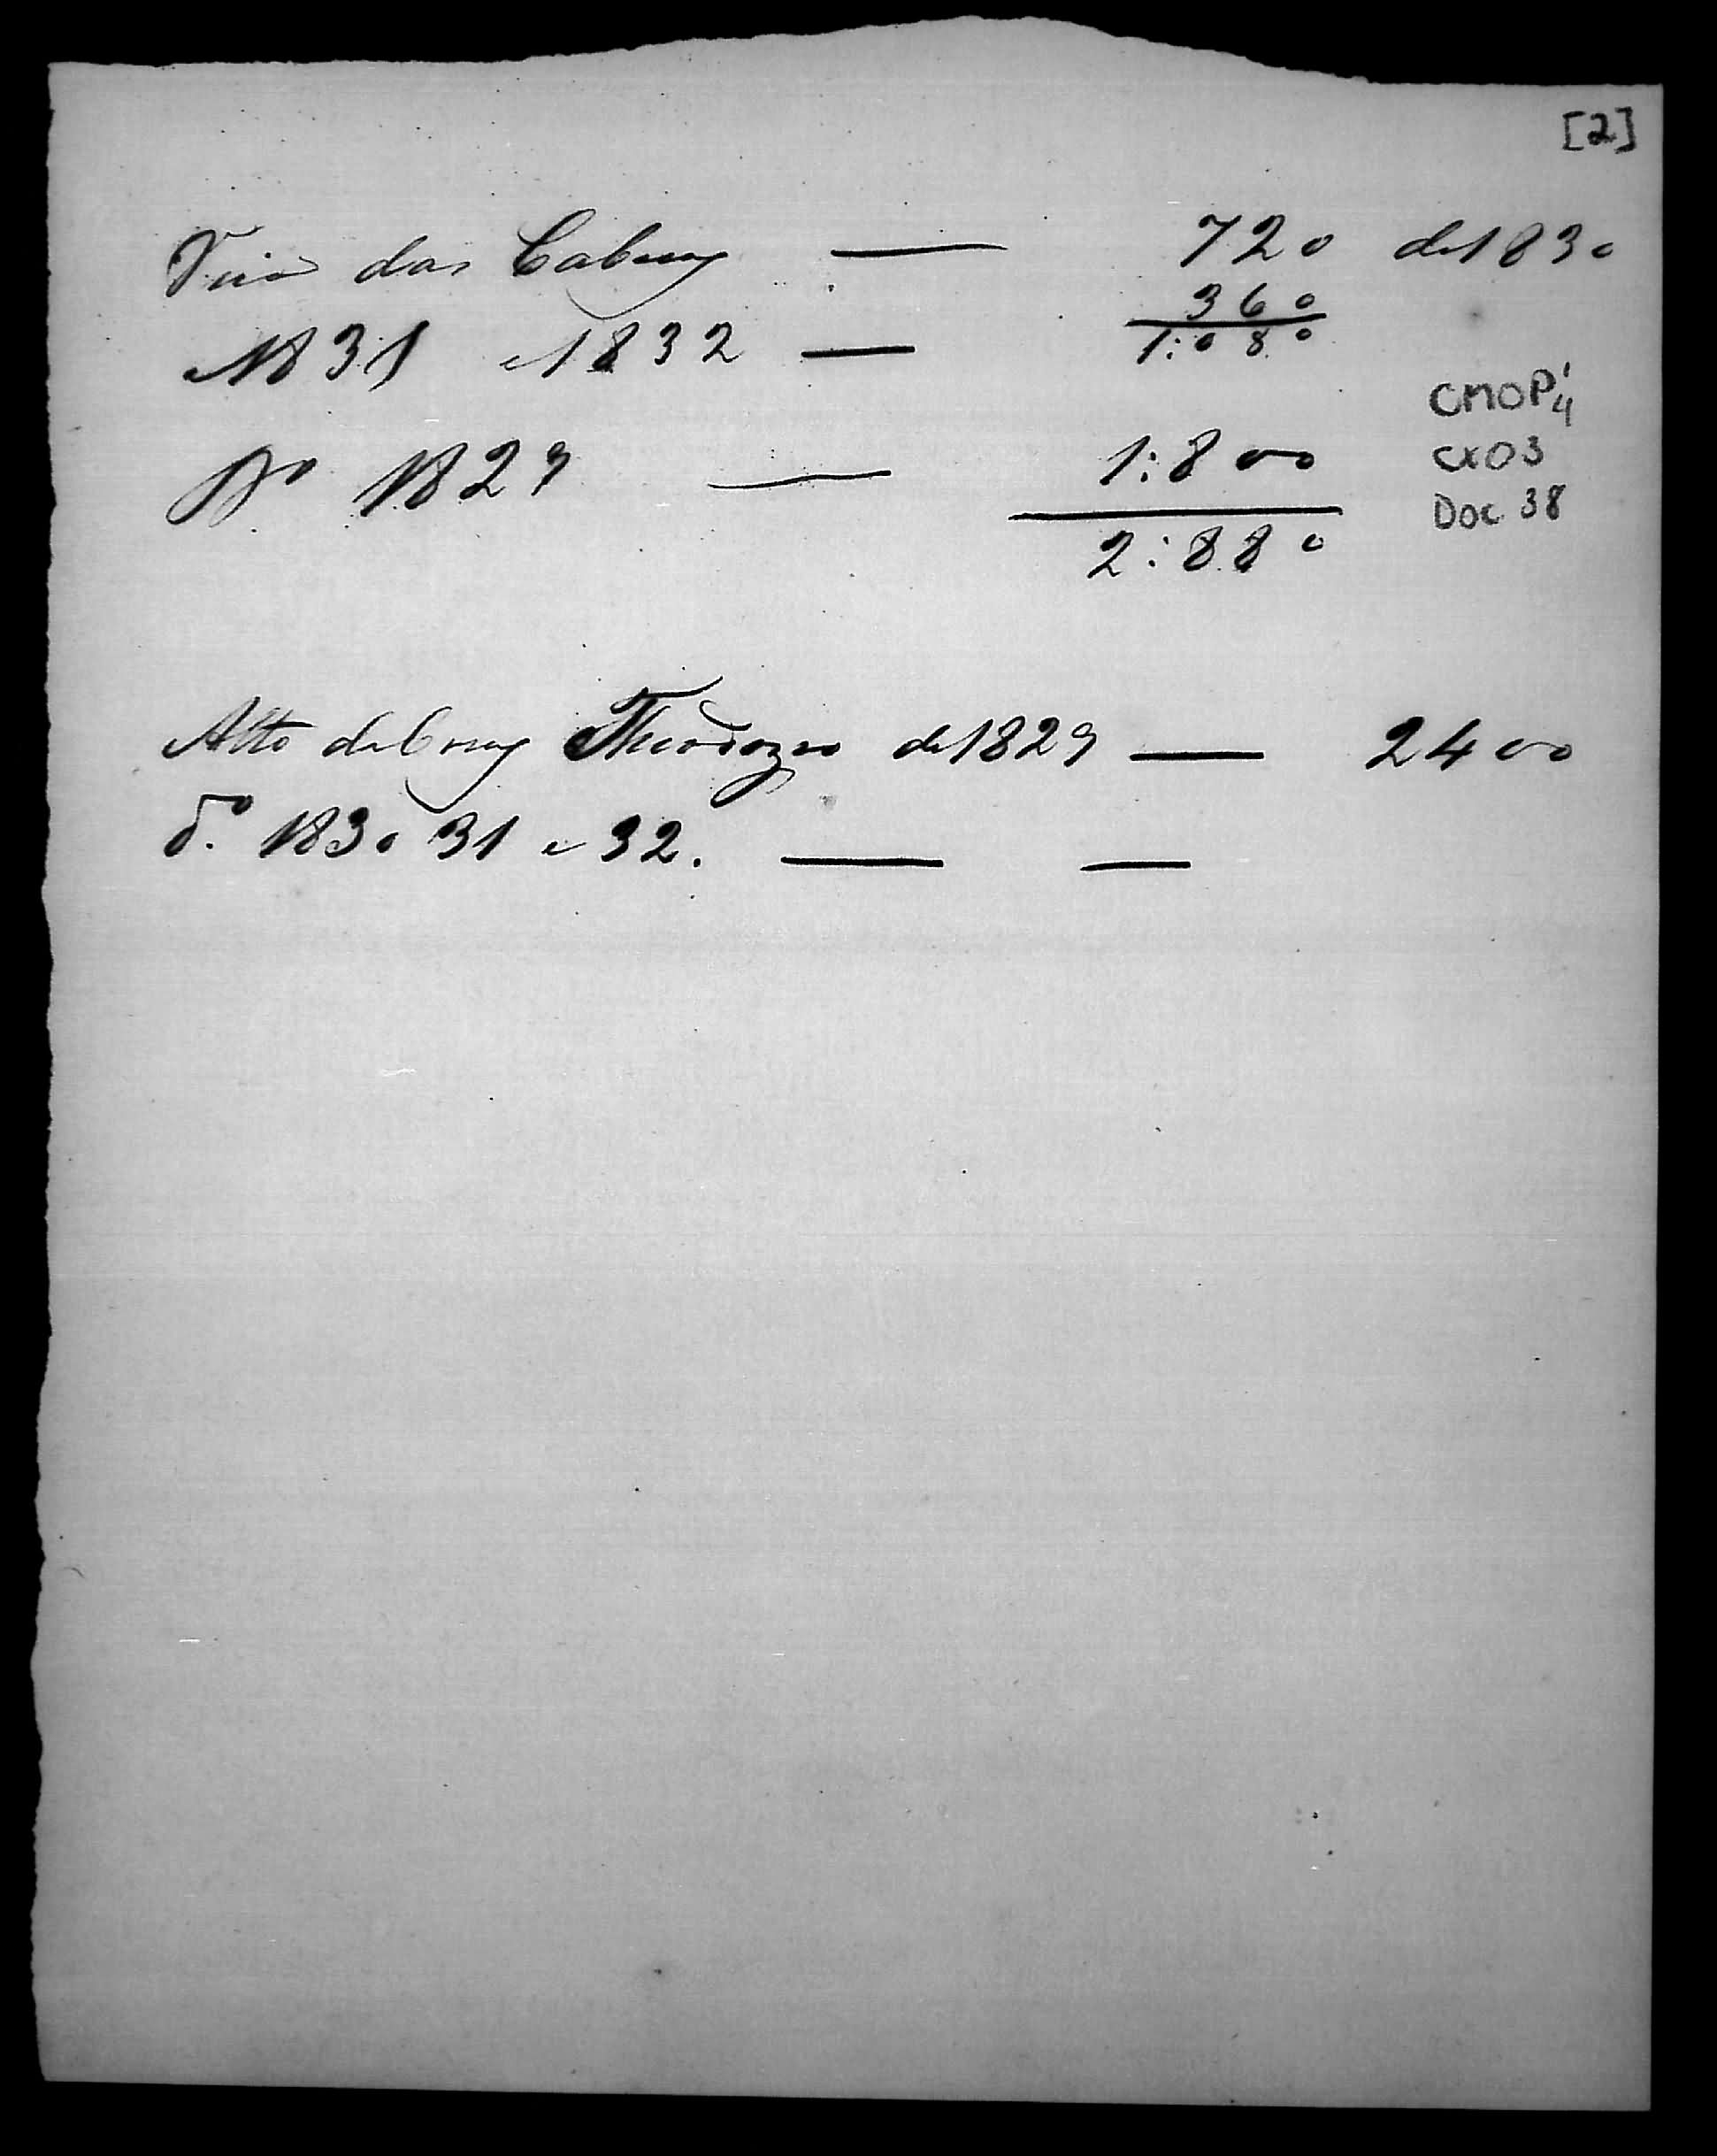 [2]
das Cabeças — 720 de 1830
360
1831 e 1832 — 1:080
CMOP
CX03
Dº 1829 — 1:800
Doc 38
2:880
Alto da Cruz Theodozio de 1829 — 2400
dº. 1830 31 e 32. — —